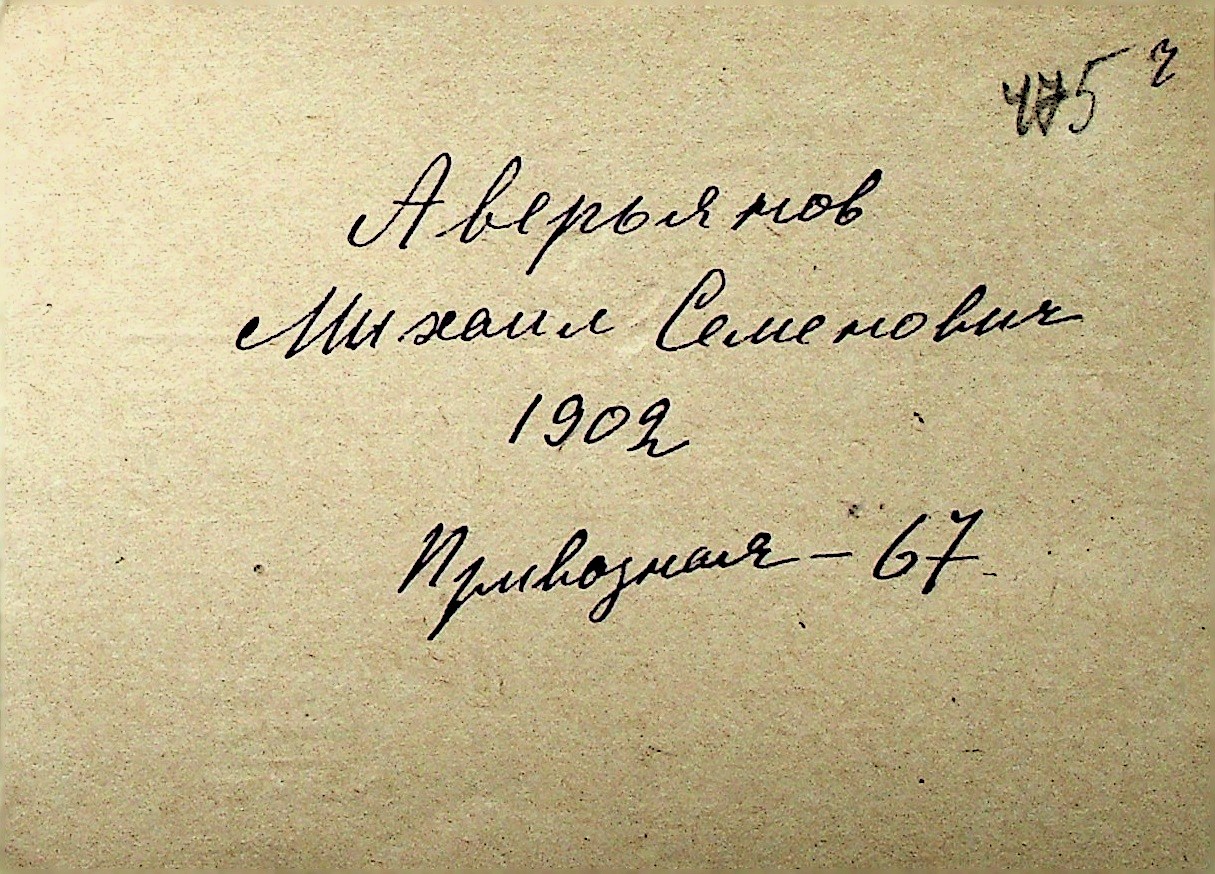 Аверьянов
Михаил Семенович
1902
Приводная – 67